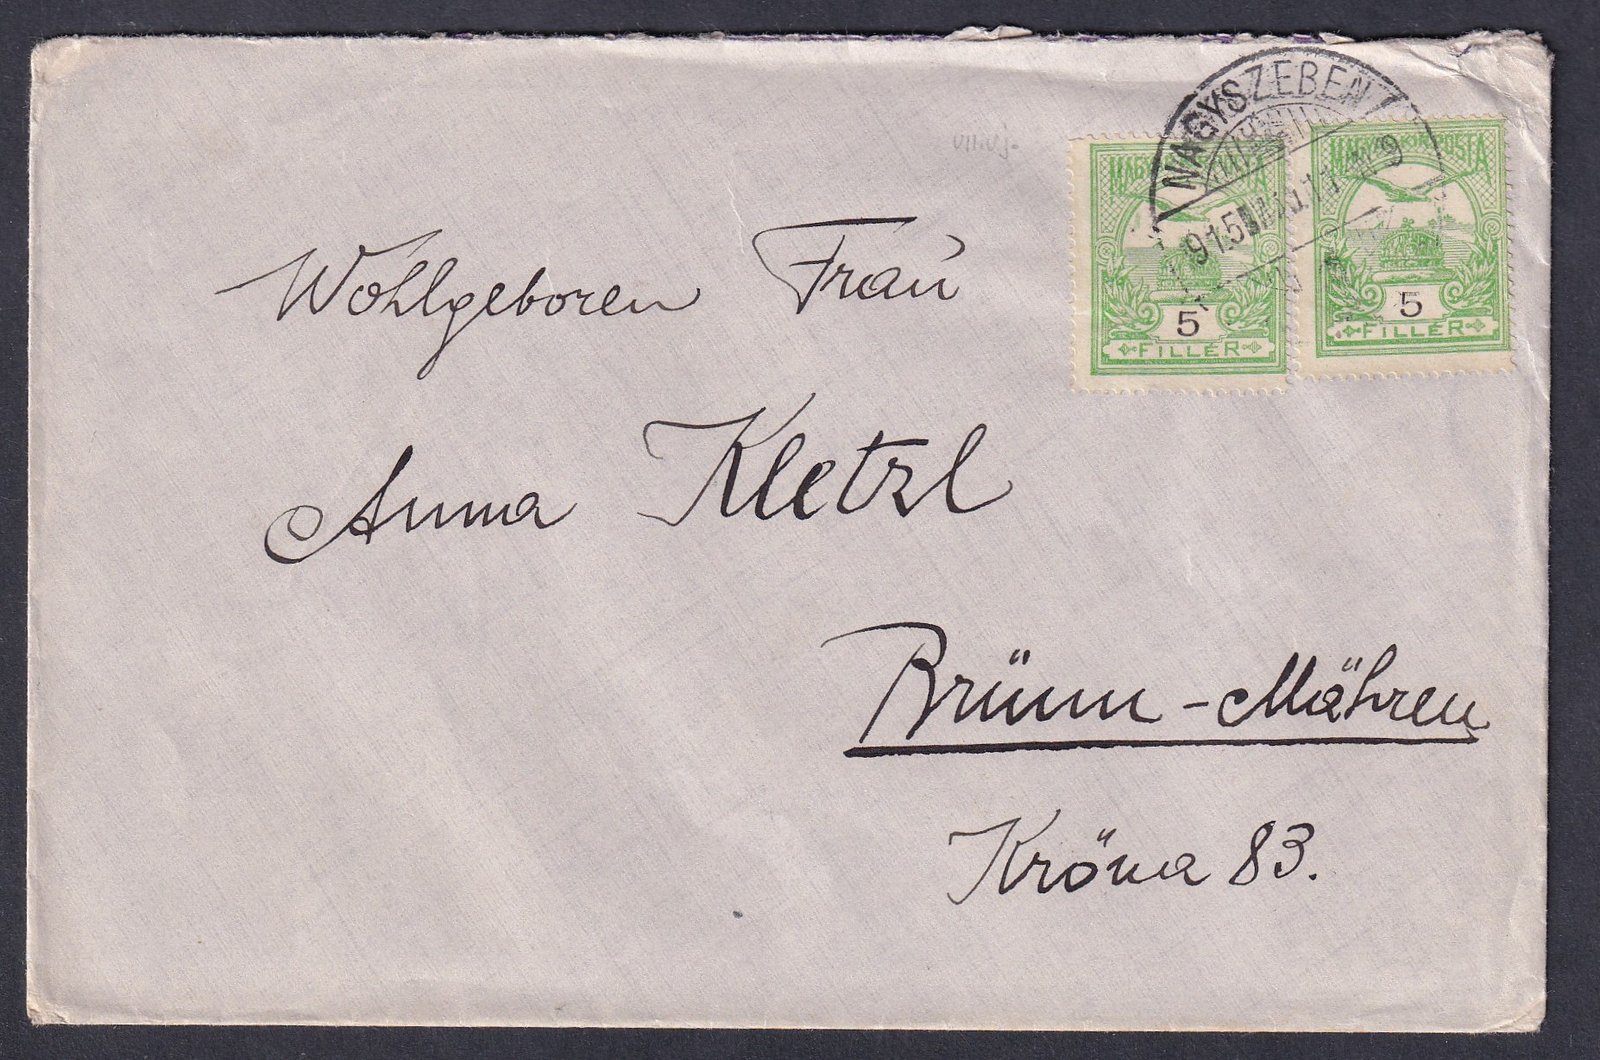 NAGYSZEBEN
915
MAGYAR KIR. POSTA
5
FILLÉR
MAGYAR KIR. POSTA
5
FILLÉR
Wohlgeboren Frau
Anna Kletzl
Brünn - Mähren
Kröna 83.